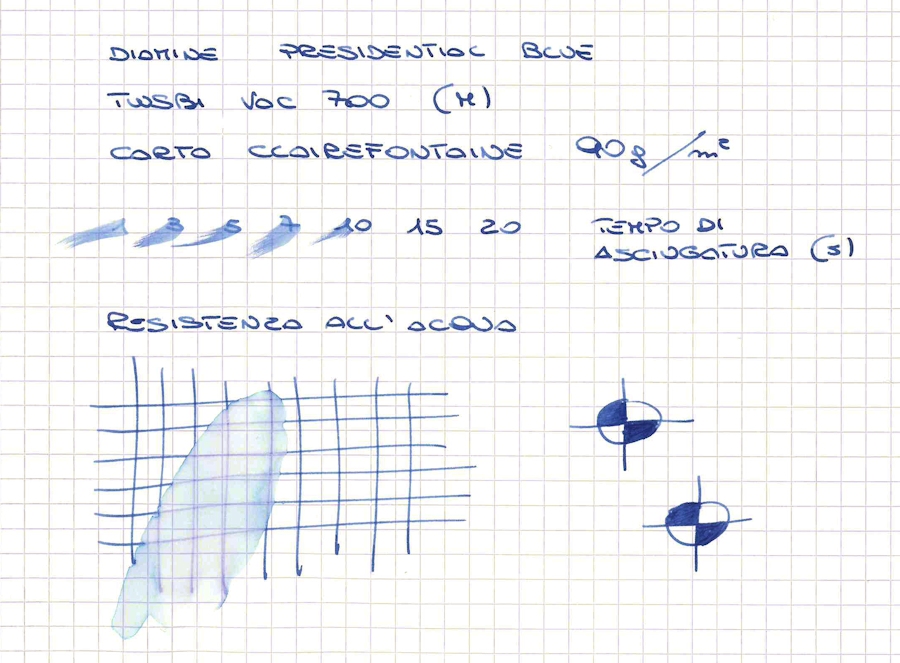 DIAMINE PRESIDENTIAL BLUE
TWSBI VAC 700 (M)
CARTA CLAIREFONTAINE 90g/m²
1 3 5 7 10 15 20 TEMPO DI
ASCIUGATURA (s)
RESISTENZA ALL' ACQUA